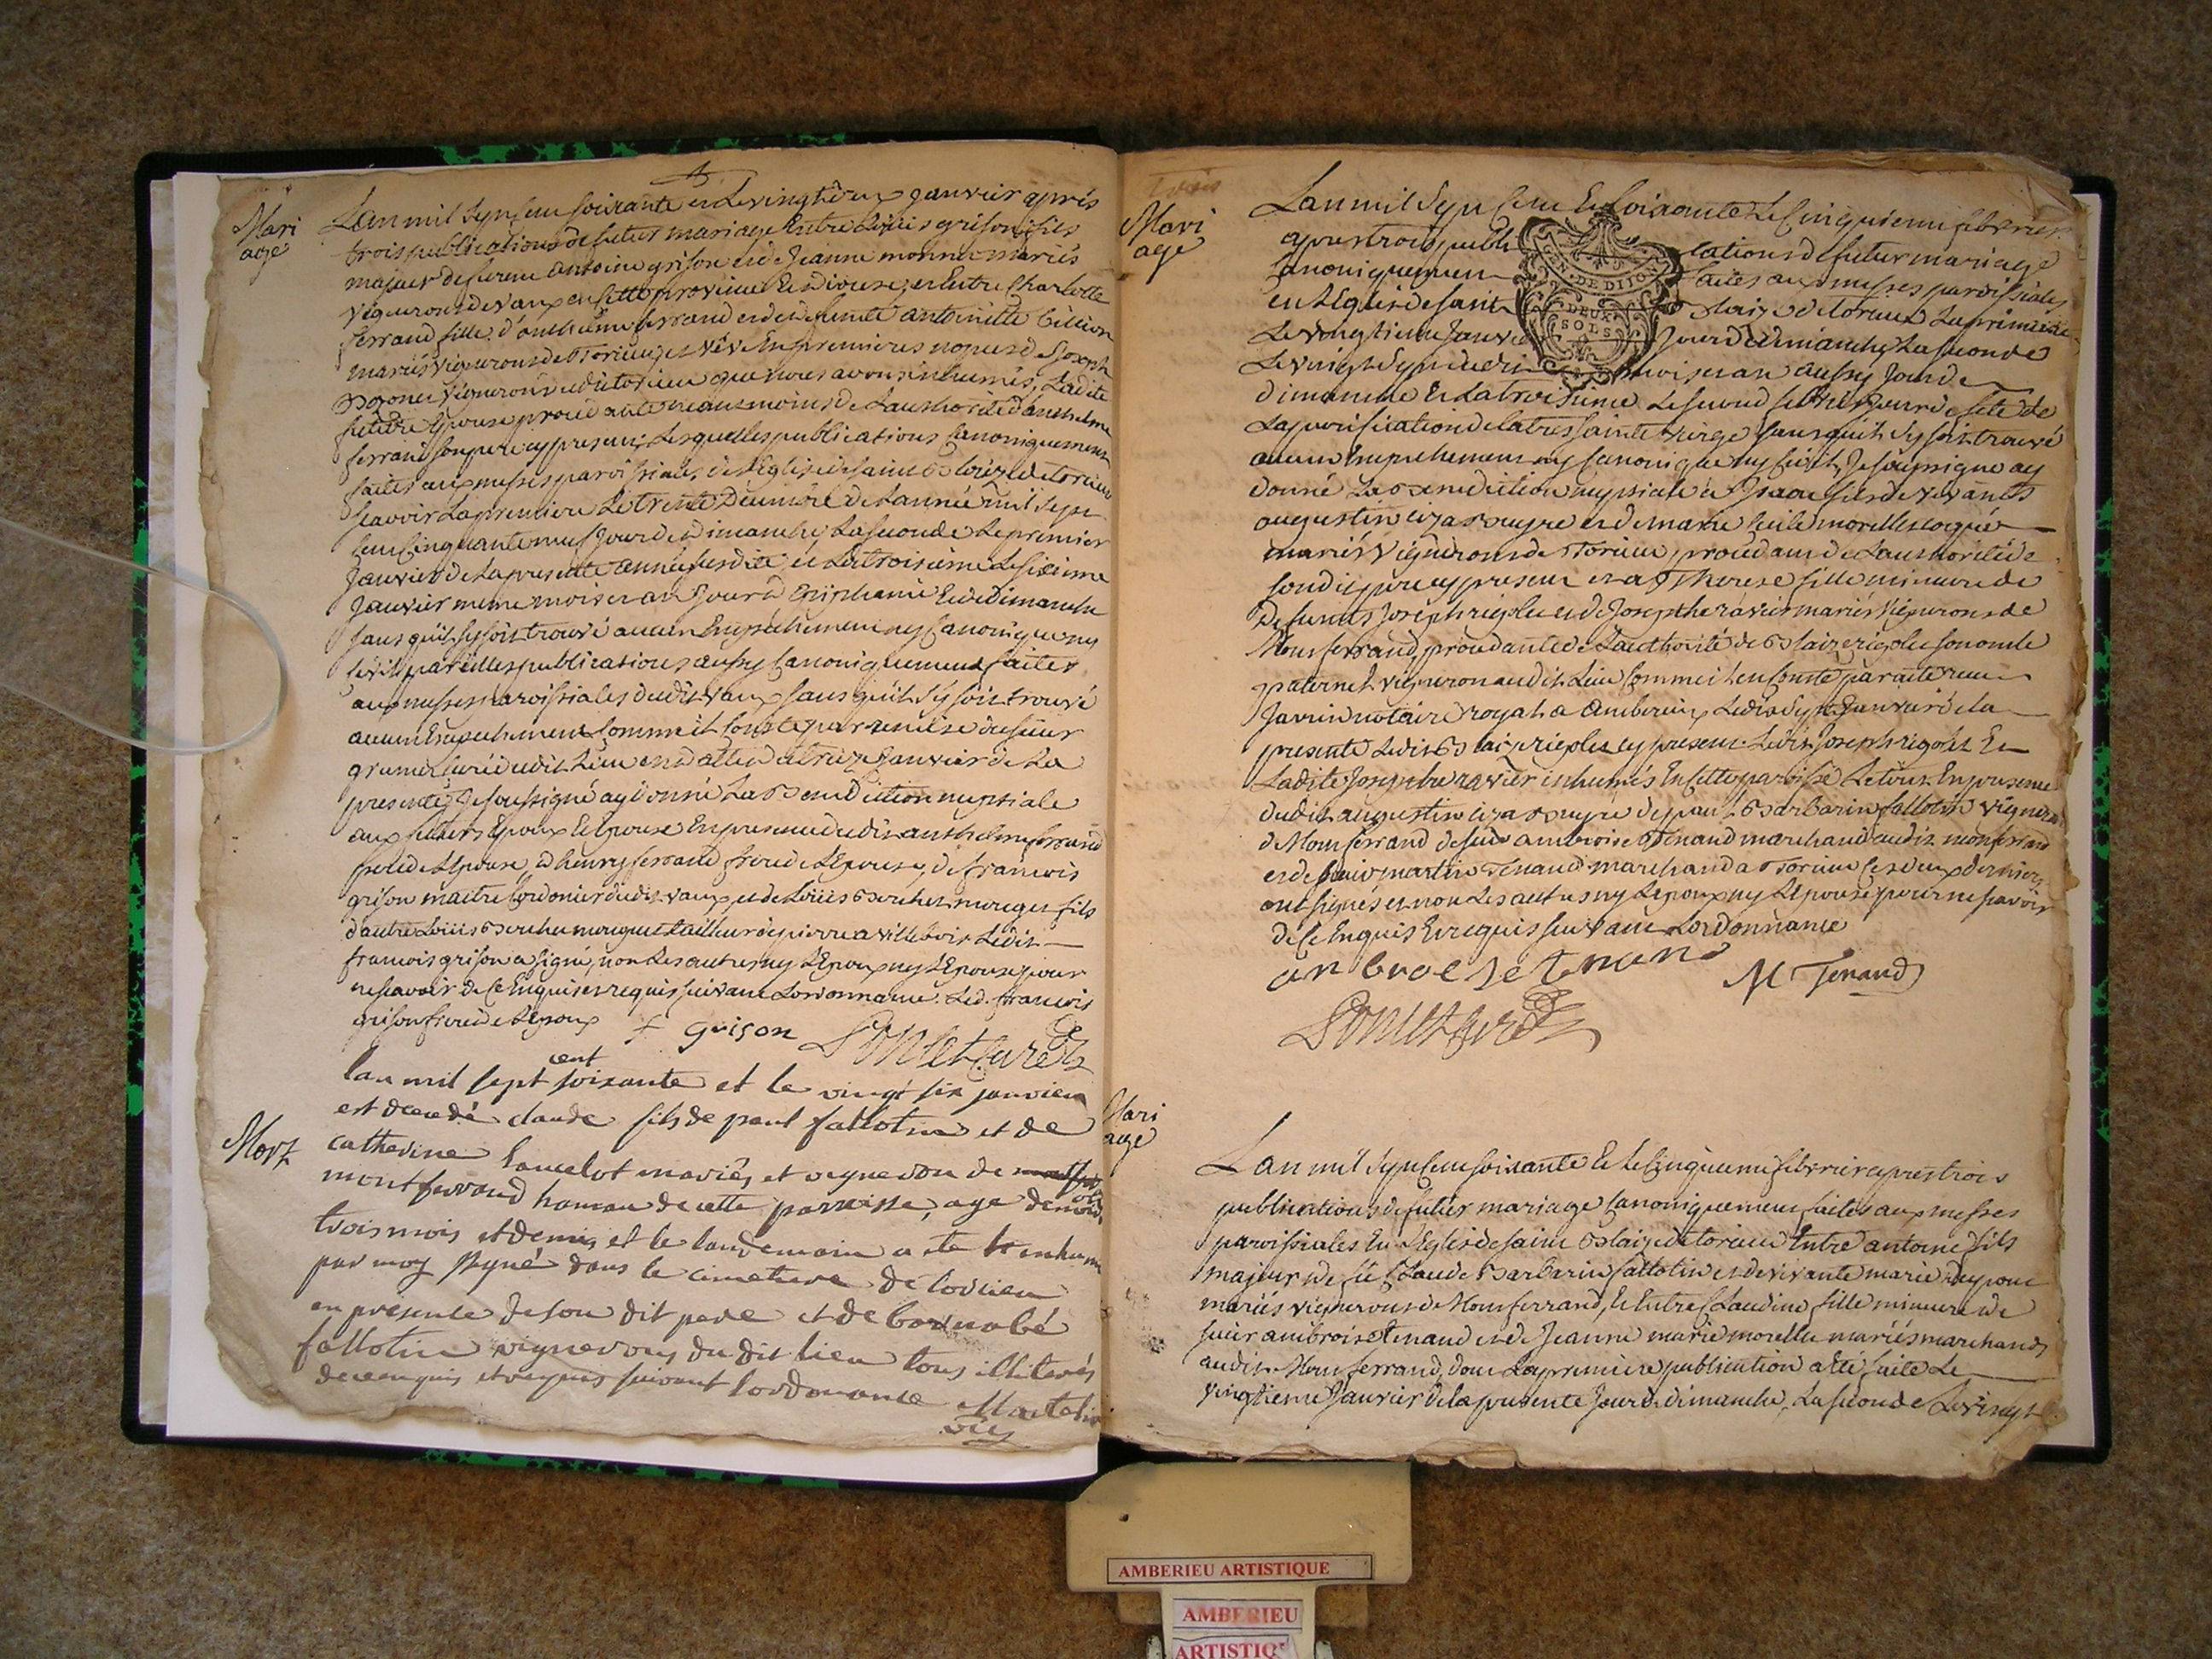 Mari
age
L'an mil sept cent soixante et le vingt deux janvier après
trois publications de futur mariage entre Loüis grison fils
majeur de antoine grison et de Jeanne monnet mariés
vignerons de vaux en cette province et diocese, et entre Charlotte
ferrand fille d'anthelme ferrand et de defunte antoinette
mariés vignerons de Torcieu, et veve en premieres nopces de Joseph
vigneron dudit torcieu que nous avons inhumés, Ladite
future Epouse procedante neantmoins de L'authorité d'anthelme
ferrand son pere cy present, Lesquelles publications Canoniquement
faites aux messes paroissiales de L'Eglise de saint Blaize de torcieu
scavoir La premiere Le trente Decembre de L'année mil sept
cent cinquante neuf jour de dimanche, La seconde Le premier
Janvier de La presente année susdite et La troisieme Le sixieme
Janvier meme mois et an jour d'Epiphanie et de dimanche
sans qu'il s'y soit trouvé aucun Empechement ny Canonique ny
civil, pareilles publications aussy Canoniquement faites
aux messes paroissiales dudit vaux sans qu'il s'y soit trouvé
aucun Empechement Comme il Conste par remise du sieur
curé dudit Lieu en datte du treize janvier de La
presente, Je soussigné ay donné La Benediction nuptiale
aux futurs Epoux et Epouse En presence dudit anthelme ferrand
pere de L'Epouse, d'henry ferrand frere de L'Epouse, de francois
grison maitre Cordonier dudit vaux, et de Loüis fils
d'autre Loüis tailleur de pierre a villebois Ledit
francois grison a signé, non Les autres ny L'Epoux ny L'Epouse pour
ne scavoir de ce Enquis et requis suivant L'ordonnance. Led. francois
grison frere de L'Epoux f grison Bonnet Curé
Mort
cent
lan mil sept soixante et le vingt six janvier
est decedé claude fils de paul fallotin et de
catherine lancelot mariés et vigneron de
montferrand hameau de cette parroisse, age de
trois mois et demis et le landemain a ete inhumé
par moy signé dans le cimetiere de torcieu
en presence de son dit pere et de barnabé
fallotin vignerons du dit lieu tous illiterés
de ce enquis et requis suivant lordonnance
vic
trois
Mari
age
L'an mil sept Cent Et soixante Le Cinquieme febvrier
apres trois publi cations de futur mariage
Canoniquement faites aux messes paroissiales
en L'Eglise de saint Blaize de torcieu La premiere
Le vingtieme Janvier Jour de dimanche, La seconde
Le vingt sept dudit mois et an aussy jour de
dimanche Et La troisieme Le second febvrier jour de fete de
La purification de la tres sainte vierge sans qu'il s'y soit trouvé
aucun Empechement ny Canonique ny Civil, Je soussigné ay
donné La Benediction nuptiale à fils de vivants
augustin et de marie
mariés vignerons de Torcieu, procedant de L'authorité de
sondit pere cy present et a Therese fille mineure de
Defunts Joseph rigolet et de Josephe ravier mariés vignerons de
Montferrand, procedante de L'authorité de Blaize rigolet son oncle
paternel vigneron audit Lieu Comme il en Conste par acte receu
Janin notaire royal a amberieux Ledit sept janvier de la
presente Ledit Blaize rigolet cy present Ledit Joseph rigolet Et
Ladite Josephe ravier inhumés En cette paroisse Le tout En presence
dudit augustin de paul Barbarin fallotin vigneron
de Montferrand de sieur ambroise Tenand marchand audit montferrand
et de sieur martin Tenand marchand a Torcieu Les deux derniers
ont signés et non Les autres ny L'epoux ny L'epouse pour ne scavoir
de ce Enquis et requis suivant L'ordonnance
anbroise tenand M Tenand
Bonnet Curé
Mari
age
L'an mil sept Cent soixante Et le Cinquieme febvrier apres trois
publications de futur mariage Canoniquement faites aux messes
paroissiales En L'Eglise de saint Blaize de torcieu Entre antoine fils
majeur de feu Claude Barbarin fallotin et de vivante marie
mariés vignerons de Montferrand, Et Entre Claudine fille mineure de
sieur ambroise Tenand et de Jeanne marie morellet mariés marchands
audit Montferrand, dont La premiere publication a été faite Le
vingtieme Janvier de la presente Jour de dimanche, La seconde Le vingt
GEN. DE DIJON
DEUX
SOLS
AMBERIEU ARTISTIQUE
AMBERIEU
ARTISTIQ